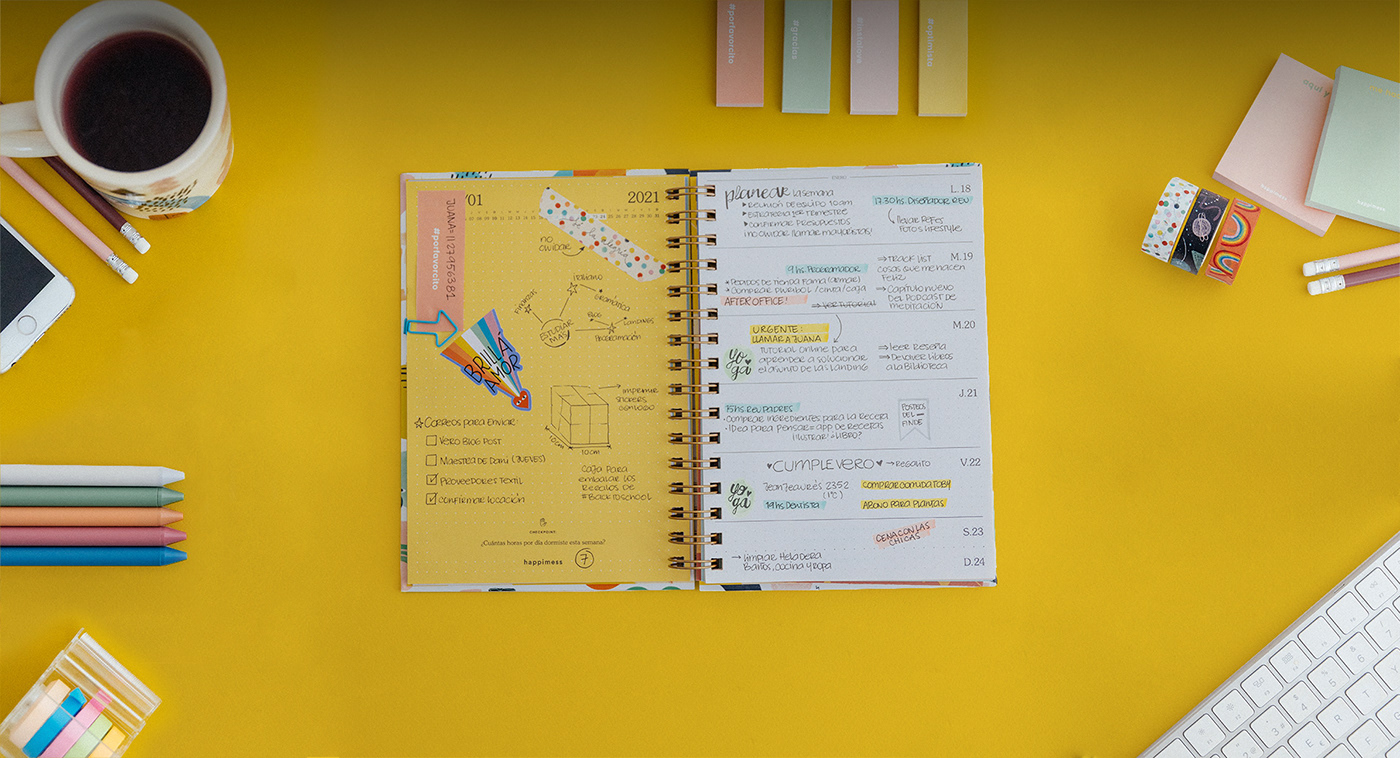 #porfavorcito
#gracias
#instalove
#optimista
happimess
happimess
/01
2021
JUANA=1127956381
#porfavorcito
NO
OLVIDAR
ITALIANO
FINANZAS
GRAMÁTICA
BLOG
ESTUDIAR
MÁS
PROGRAMACIÓN
BRILLÁ
AMOR
IMPRIMIR
STICKERS
CON LOGO
10CM
10CM
CORREOS PARA ENVIAR
VERO BLOG POST
MAESTRA DE DANI (JUEVES)
PROVEEDORES TEXTIL
CONFIRMAR LOCACIÓN
CAJA PARA
EMBALAR LOS
REGALOS DE
#BACKTOSCHOOL
CHECKPOINT:
¿Cuántas horas por día dormiste esta semana?
happimess
7
ENERO
planear la semana
L.18
REUNIÓN DE EQUIPO 10AM
ESTRATEGIA 1ER TRIMESTRE
CONFIRMAR PRESUPUESTOS
17:30hs. DISEÑADOR REU
llevar REFES
FOTOS LIFESTYLE
M.19
9 hs PROGRAMADOR
PEDIDOS DE TIENDA PAMA (ARMAR)
COMPRAR PLURIBOL / CINTA / CAJA
AFTER OFFICE!
→ VER TUTORIAL
⇒ TRACK LIST
COSAS QUE ME HACEN
FELIZ
⇒ CAPÍTULO NUEVO
DEL PODCAST DE
MEDITACIÓN
M.20
URGENTE:
LLAMAR A JUANA
yo
ga
TUTORIAL ONLINE PARA
APRENDER A SOLUCIONAR
EL ASUNTO DE LAS LANDING
⇒ LEER RESEÑA
⇒ DEVOLVER LIBROS
A LA BIBLIOTECA
J.21
15hs REU PADRES
COMPRAR INGREDIENTES PARA LA RECETA
IDEA PARA PENSAR = APP DE RECETAS
ILUSTRAR = LIBRO?
POSTEOS
DEL
FINDE
V.22
♥CUMPLE VERO♥ → REGALITO
yo
ga
JEAN JEAURÉS 2352
(1°C)
19hs DENTISTA
COMPRAR COMIDA TOBY
ABONO PARA PLANTAS
S.23
CENA CON LAS
CHICAS
→ LIMPIAR HELADERA
BAÑOS, COCINA Y ROPA
D.24